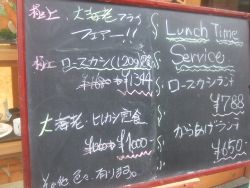 極上 大海老フライ
フェアー!!
極上 ロースカシ(120g)
¥1344
大海老・ヒレカツ定食
¥1000
その他色々、有ります。
Lunch Time
Service
ロースカツランチ
¥788
からあげランチ
¥650